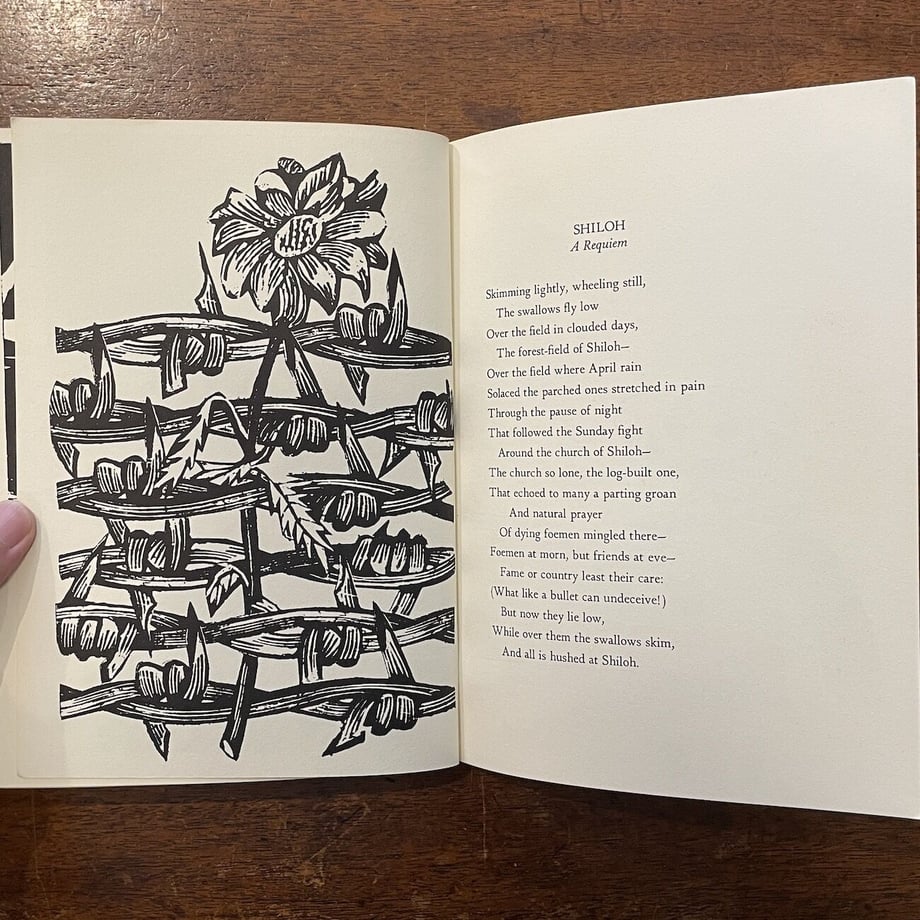 SHILOH
A Requiem
Skimming lightly, wheeling still,
The swallows fly low
Over the field in clouded days,
The forest-field of Shiloh—
Over the field where April rain
Solaced the parched ones stretched in pain
Through the pause of night
That followed the Sunday fight
Around the church of Shiloh—
The church so lone, the log-built one,
That echoed to many a parting groan
And natural prayer
Of dying foemen mingled there—
Foemen at morn, but friends at eve—
Fame or country least their care:
(What like a bullet can undeceive!)
But now they lie low,
While over them the swallows skim,
And all is hushed at Shiloh.